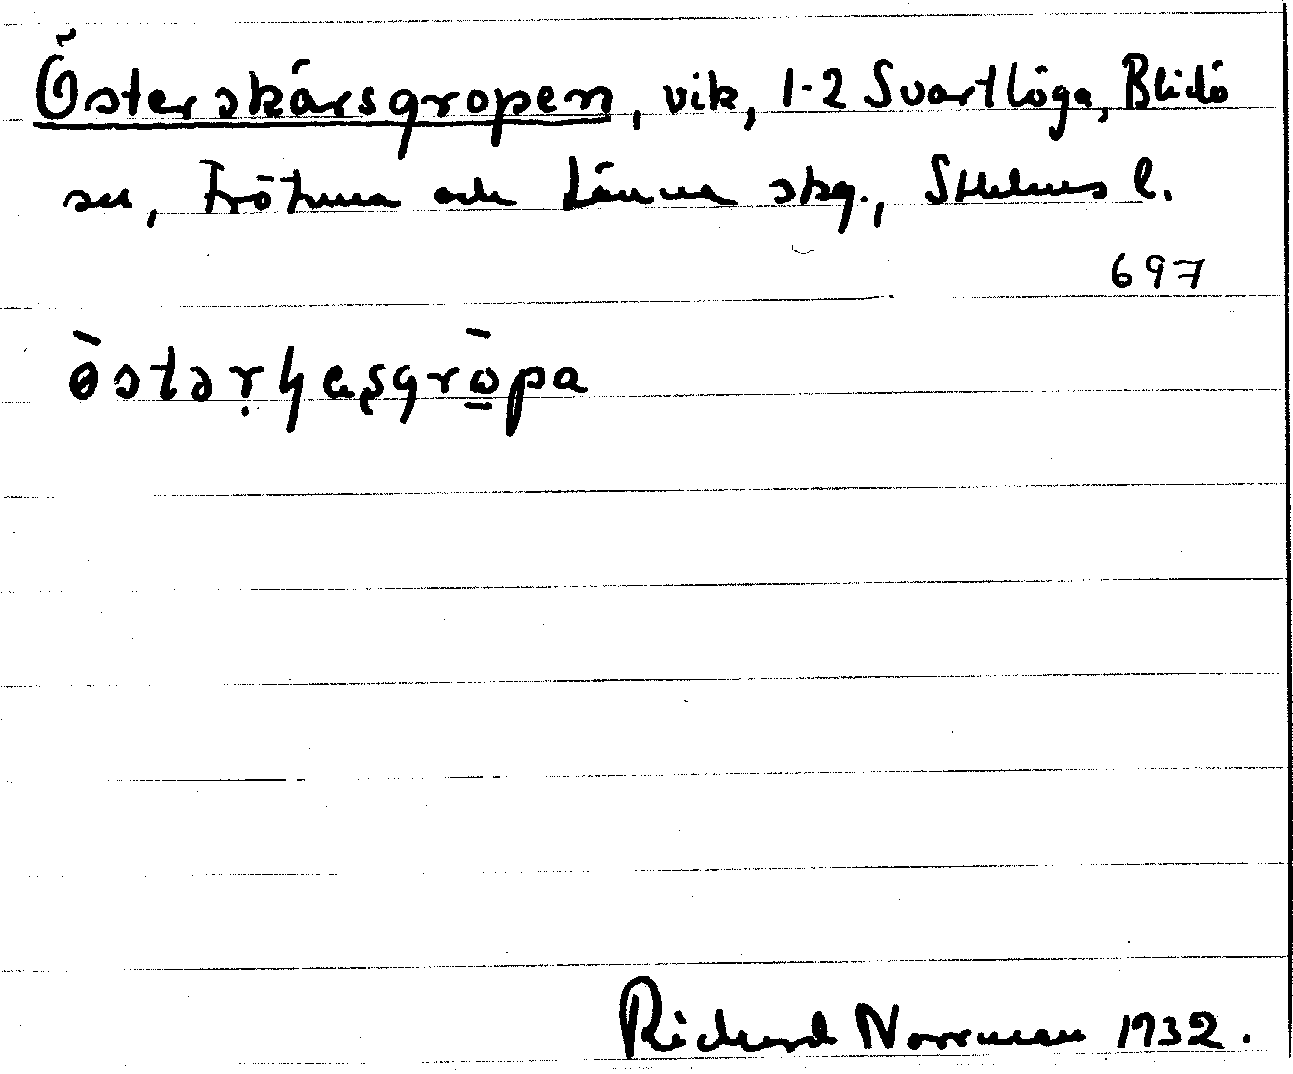 Österskärsgropen, vik, 1-2 Svartlöga, Blidö
sn, Frötuna och Länna skg., Sthlms l.
697
östərɧɐsgropa
Richard Norrman 1932.